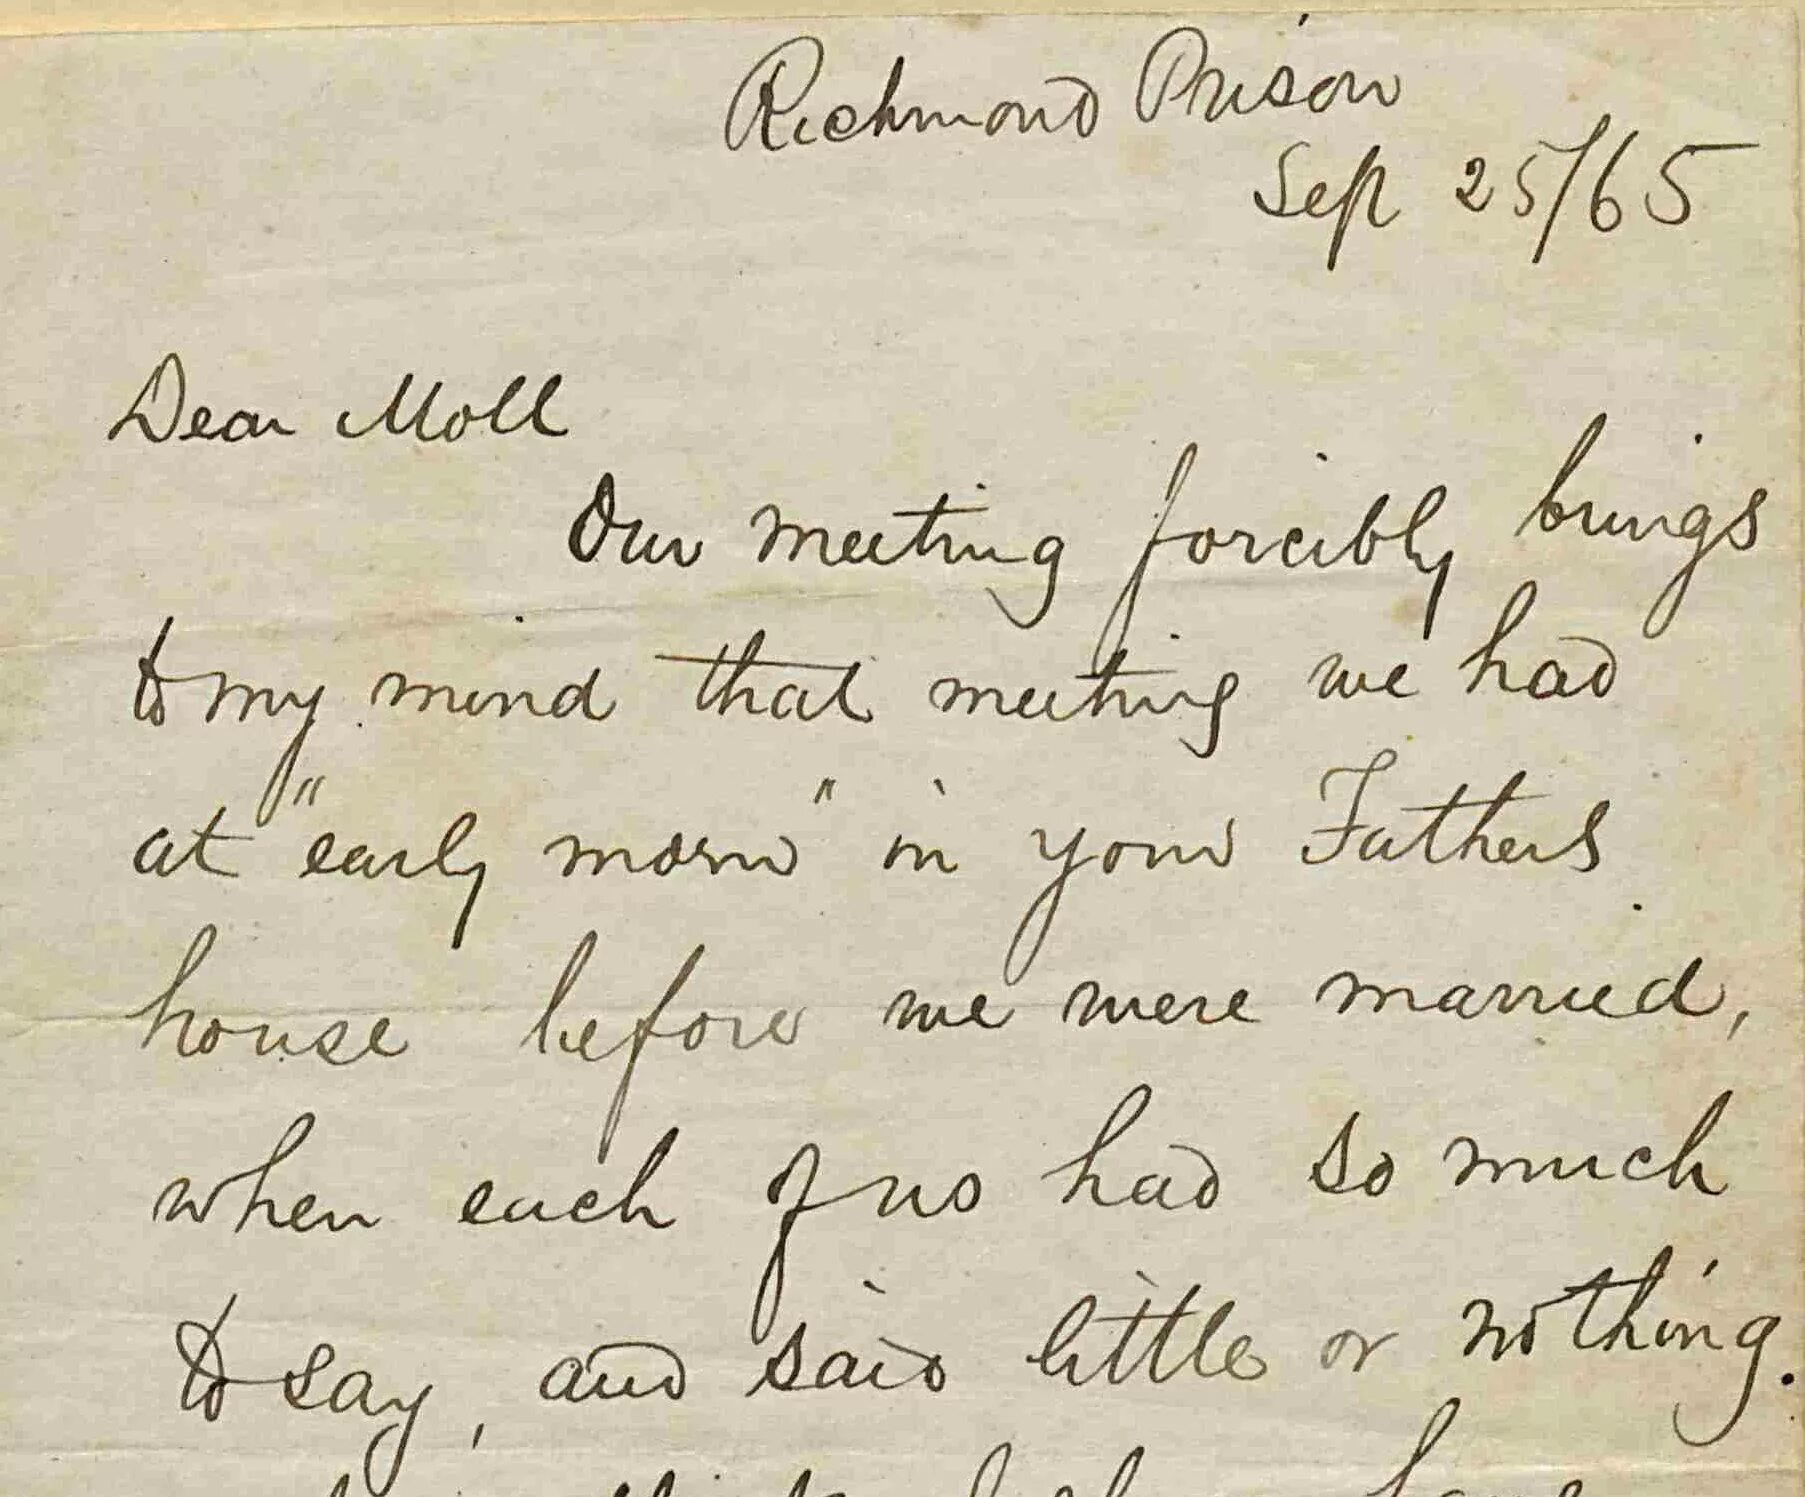 Richmond Prison
Sept 25/65
Dear Moll
Our meeting forcibly brings
to my mind that meeting we had
at "early morn" in your Fathers
house before we were married,
when each of us had so much
to say, and said little or nothing.